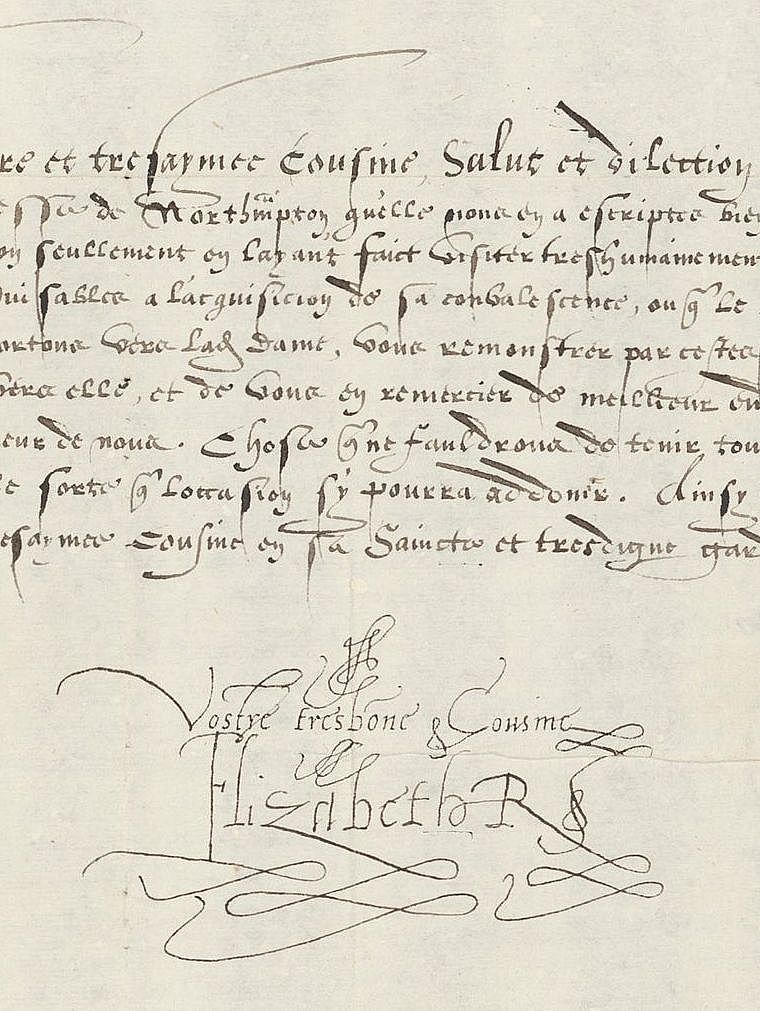 re et tresaymee Cousine, Salut et dilection
esse de Northampton quelle nous en a escriptes bien
on seullement en layant faict visiter treshumainement
a l'acquisicion de sa convalescence, ou q̃ le
portons vers lad Dame, vous remonstrer par cestes
vers elle, et de vous en remercier de meilleur
eur de nous. Chose q̃ ne fauldrons de tenir
e sorte q̃ loccasion s'y pourra addoner. Ainsy
esaymee Cousine en sa Saincte et tresdigne gard
Vostre tresbone Cousine
Elizabeth R